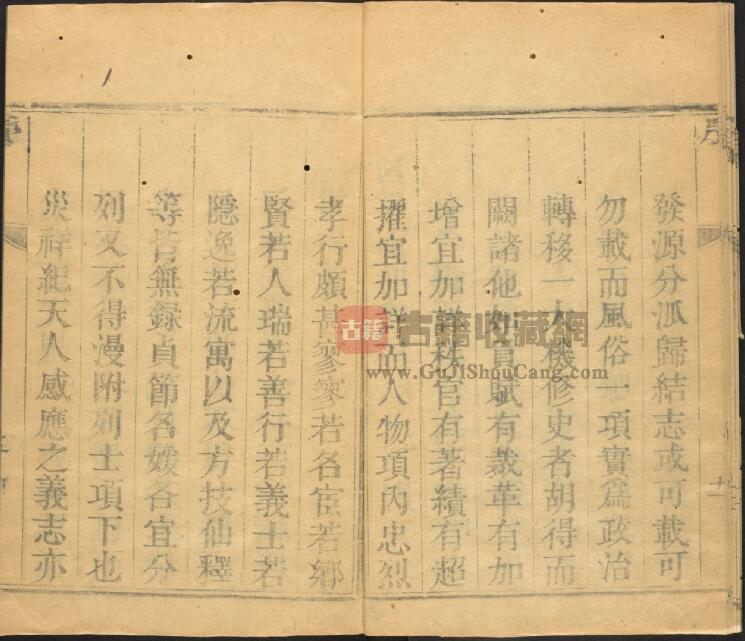 序
發源分派歸結志或可載可
勿載而風俗一項實爲政治
轉移一大機修史者胡得而
闕諸他如貢賦有裁革有加
增宜加詳秩官有著績有超
擢宜加詳而人物項內忠烈
孝行頗甚寥寥若名宦若鄉
賢若人瑞若善行若義士若
隱逸若流寓以及方技仙釋
等皆無録貞節名媛各宜分
列又不得漫附列士項下也
災祥紀天人感應之義志亦
古籍
古籍收藏網
www.GuJiShouCang.com